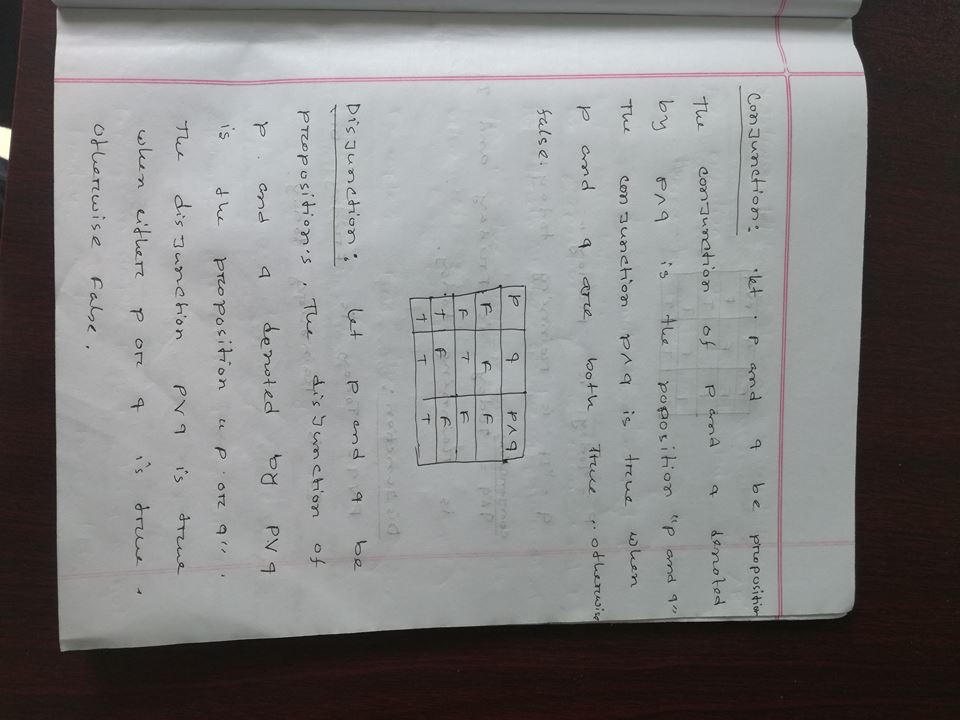 Conjunction: let p and q be proposition
The conjunction of p and q denoted
by p∧q is the poposition "p and q"
The conjunction p∧q is true when
p and q are both True .. otherwise
false.
p q p∧q
F F F
F T F
T F F
T T T
Disjunction: Let p and q be
proposition's. The disjunction of
p and q denoted by p∨q
is the proposition "p or q".
The disjunction p∨q is true
when either p or q is true.
Otherwise False.